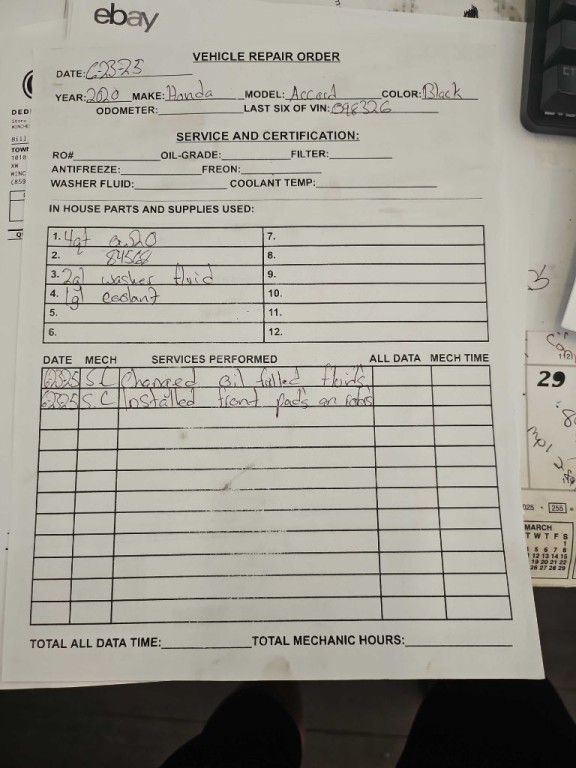 ebay
VEHICLE REPAIR ORDER
DATE: 6-23-25
YEAR: 2020 MAKE: Honda MODEL: Accord COLOR: Black
ODOMETER: LAST SIX OF VIN: 098326
SERVICE AND CERTIFICATION:
RO# OIL-GRADE: FILTER:
ANTIFREEZE: FREON:
WASHER FLUID: COOLANT TEMP:
IN HOUSE PARTS AND SUPPLIES USED:
1. 4qt 0.20 7.
2. 84502 8.
3. 2gl washer fluid 9.
4. 1gl coolant 10.
5. 11.
6. 12.
DATE MECH SERVICES PERFORMED ALL DATA MECH TIME
62325 S.C Changed oil filled fluids
62325 S.C Installed front pads an rotors
TOTAL ALL DATA TIME: TOTAL MECHANIC HOURS:
29
255
MARCH
T W T F S
1
5 6 7 8
12 13 14 15
19 20 21 22
26 27 28 29